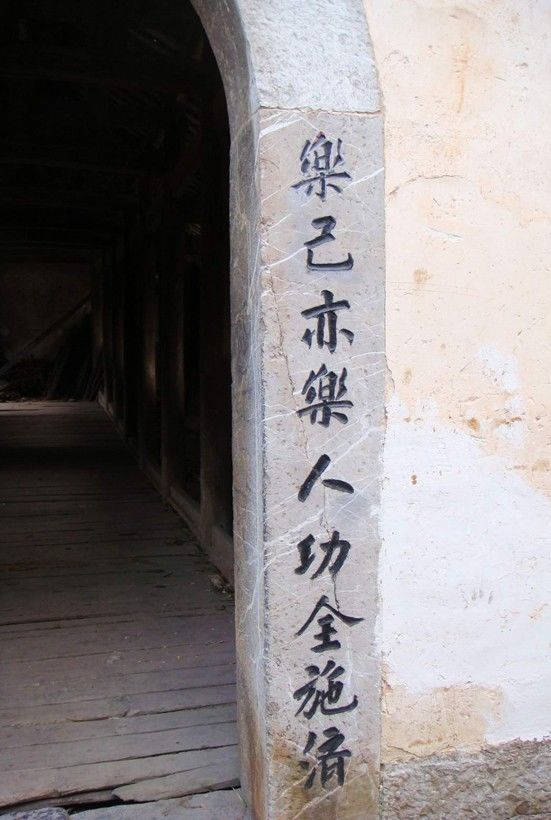 樂己亦樂人功全施済